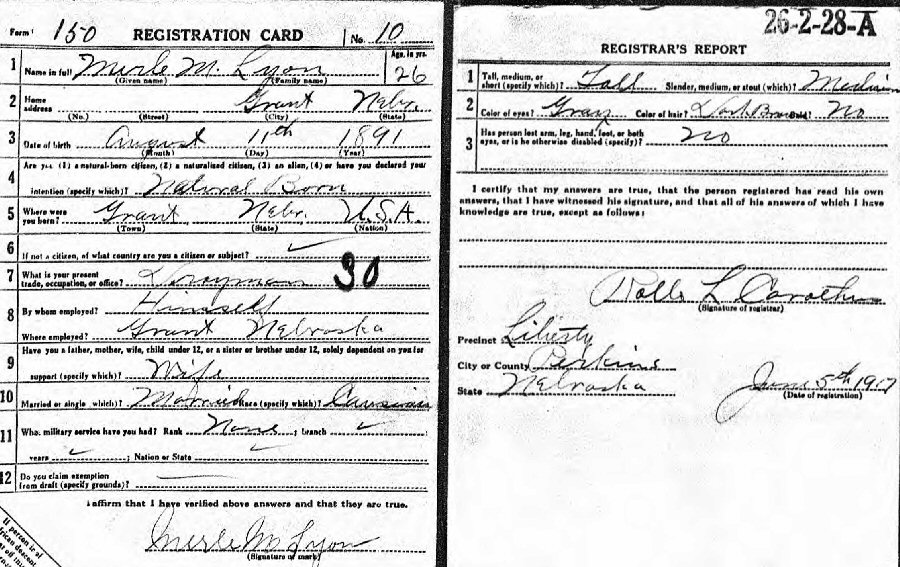 Form 1 150 REGISTRATION CARD No. 10
1 Name in full Merle M. Lyon Age, in yrs. 26
(Given name) (Family name)
2 Home address Grant Nebr.
(No.) (Street) (City) (State)
3 Date of birth August 11th 1891
(Month) (Day) (Year)
4 Are you (1) a natural-born citizen, (2) a naturalized citizen, (3) an alien, (4) or have you declared your
intention (specify which)? Natural Born
5 Where were you born? Grant Nebr. U.S.A.
(Town) (State) (Nation)
6 If not a citizen, of what country are you a citizen or subject? ✓
7 What is your present trade, occupation, or office? Drayman 30
8 By whom employed? Himself
Where employed? Grant Nebraska
9 Have you a father, mother, wife, child under 12, or a sister or brother under 12, solely dependent on you for
support (specify which)? Wife
10 Married or single (which)? Married Race (specify which)?
11 What military service have you had? Rank None ; branch ✓
years ✓ ; Nation or State ✓
12 Do you claim exemption from draft (specify grounds)? —
I affirm that I have verified above answers and that they are true.
Merle M Lyon
(Signature or mark)
If person is of
African descent
26-2-28-A
REGISTRAR'S REPORT
1 Tall, medium, or short (specify which)? Tall Slender, medium, or stout (which)? Medium
2 Color of eyes? Gray Color of hair? Dark Brown Bald? No
3 Has person lost arm, leg, hand, foot, or both eyes, or is he otherwise disabled (specify)? No
I certify that my answers are true, that the person registered has read his own
answers, that I have witnessed his signature, and that all of his answers of which I have
knowledge are true, except as follows:
L Carothers
(Signature of registrar)
Precinct Liberty
City or County Perkins
State Nebraska June 5th 1917
(Date of registration)